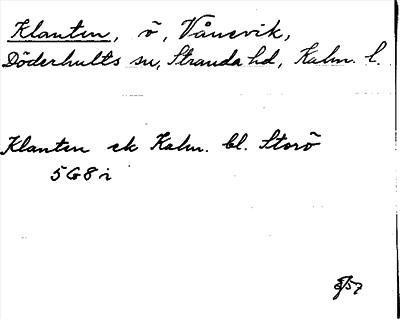 Klanten, ö, Vånevik,
Döderhults sn, Stranda hd, Kalm. l.
Klanten ek Kalm. bl. Storö
5 G 8 i